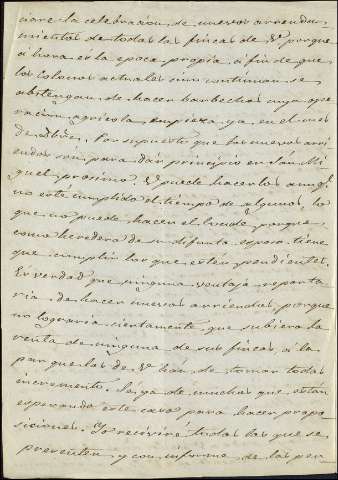 cione la celebracion de nuevos arrenda-
mientos de todas las fincas de Vd. porque
ahora es la epoca propia, a fin de que
los colonos actuales sino continuan se
abstengan de hacer barbechos cuya ope
racion agricola empieza ya, en el mes
de Por supuesto que los nuevos arri
endos son para dar principio en San Mi
guel proximo. Vd. puede hacerlos aunq.
no este cumplido el tiempo de algunos, lo
que no puede hacer el porque,
como heredera de su difunta esposa tiene
que cumplir los que esten pendientes.
Es verdad que ninguna ventaja reporta
ria de hacer nuevos arriendos, porque
no lograria ciertamente que subiera la
renta de ninguna de sus fincas, a la
par que las de Vd. han de tomar todas
incremento. Se ya de muchos que estan
esperando este caso para hacer propo
siciones. Yo recivire todas las que se
presenten, y con informe de las per